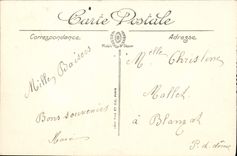 Carte Postale
Correspondance.
Adresse.
Mille Baisers
Bons souvenirs
Marie
Melle Christine
Mallet
à Blanzat
P. d. dôme